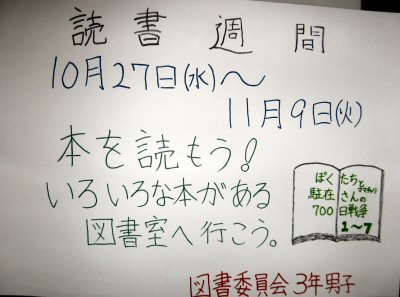 読書週間
10月27日(水)～
11月9日(火)
本を読もう!
いろいろな本がある
図書室へ行こう。
ぼくたちと
駐在さんの
700日戦争
1～7
図書委員会3年男子